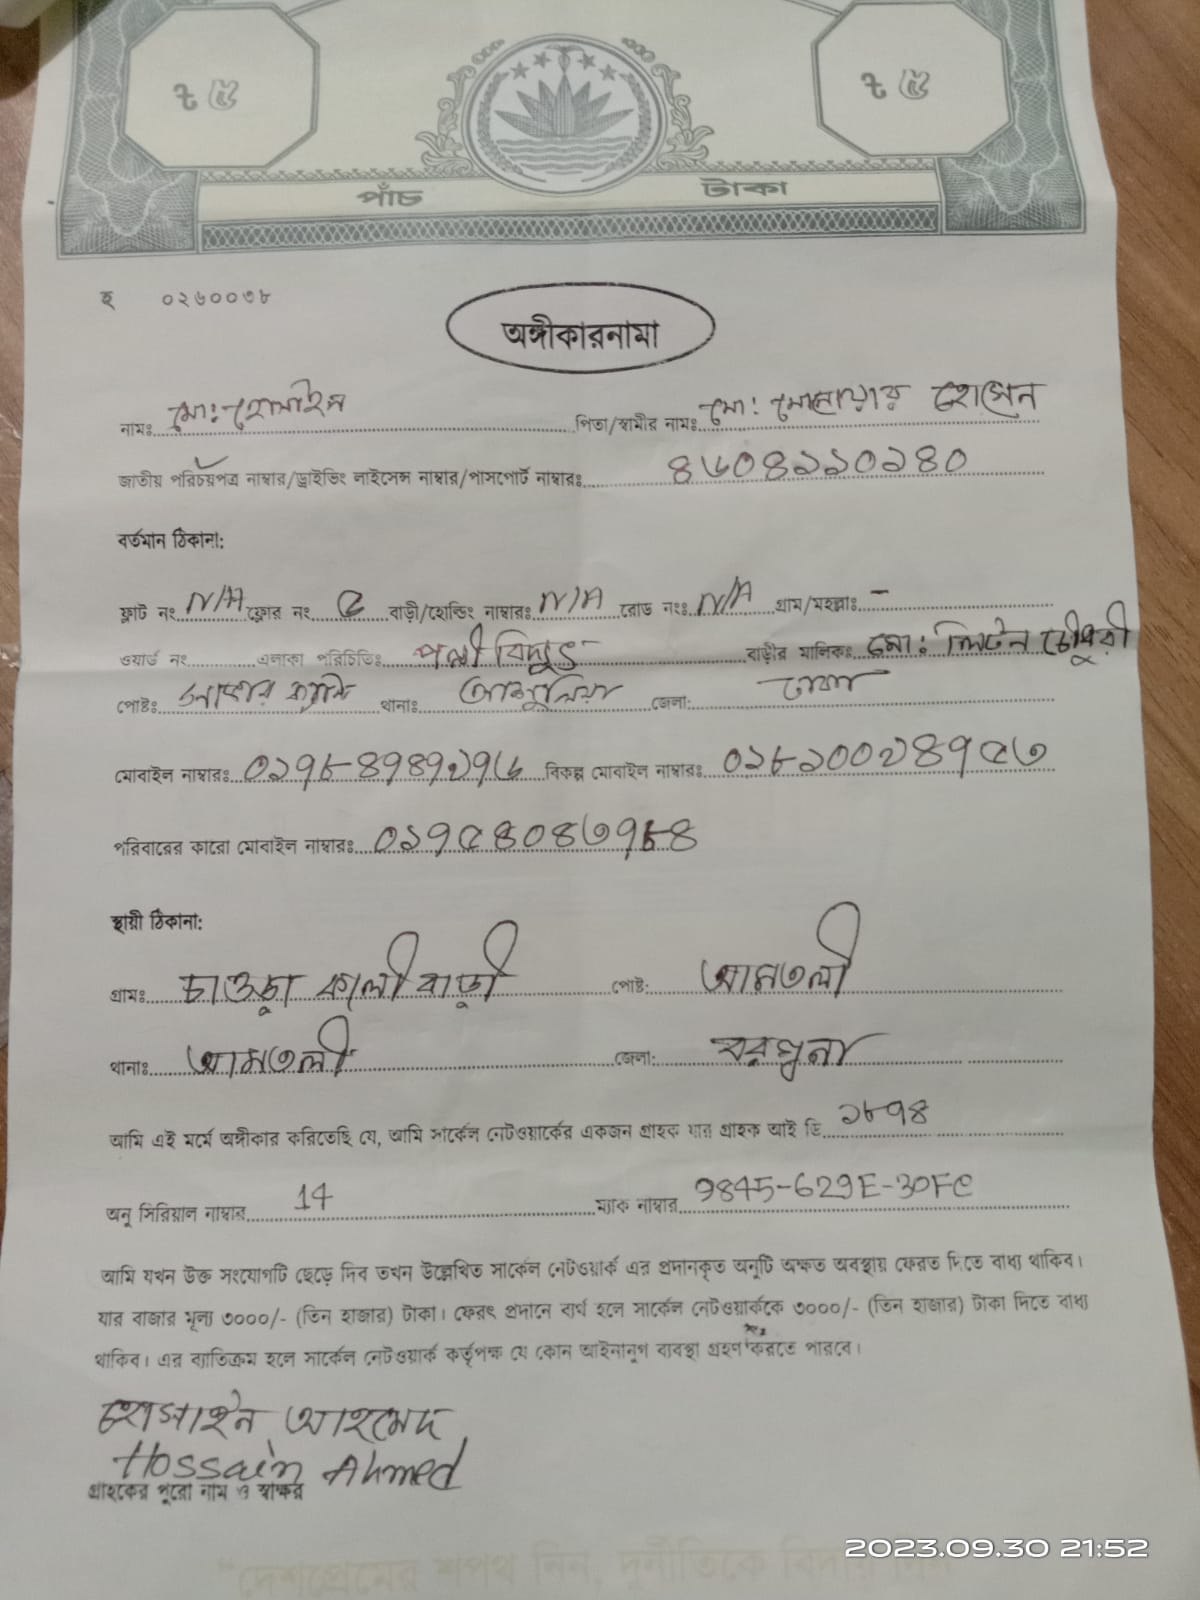 ৳ ৫ ৳ ৫
পাঁচ টাকা
হ ০২৬০০৩৮
অঙ্গীকারনামা
নামঃ মো: হোসাইন পিতা/স্বামীর নামঃ মো: মোনোয়ার হোসেন
জাতীয় পরিচয়পত্র নাম্বার/ড্রাইভিং লাইসেন্স নাম্বার/পাসপোর্ট নাম্বারঃ ৪৬০৪২১০১৪০
বর্তমান ঠিকানা:
ফ্লাট নং N/A ফ্লোর নং ৫ বাড়ী/হোল্ডিং নাম্বারঃ N/A রোড নংঃ N/A গ্রাম/মহল্লাঃ -
ওয়ার্ড নং এলাকা পরিচিতিঃ পল্লী বিদ্যুৎ বাড়ীর মালিকঃ মো: লিটন চৌধুরী
পোষ্টঃ থানাঃ আশুলিয়া জেলা: ঢাকা
মোবাইল নাম্বারঃ ০১৭৮৪৭৪৭২৭৬ বিকল্প মোবাইল নাম্বারঃ ০১৮১০০২৪৭৫৩
পরিবারের কারো মোবাইল নাম্বারঃ
স্থায়ী ঠিকানা:
গ্রামঃ চাওড়া কালীবাড়ী পোষ্ট: আমতলী
থানাঃ আমতলী জেলা: বরগুনা
আমি এই মর্মে অঙ্গীকার করিতেছি যে, আমি সার্কেল নেটওয়ার্কের একজন গ্রাহক যার গ্রাহক আই ডি ১৮৭৪
অনু সিরিয়াল নাম্বার 14 ম্যাক নাম্বার 9845-629E-30FC
আমি যখন উক্ত সংযোগটি ছেড়ে দিব তখন উল্লেখিত সার্কেল নেটওয়ার্ক এর প্রদানকৃত অনুটি অক্ষত অবস্থায় ফেরত দিতে বাধ্য থাকিব।
যার বাজার মূল্য ৩০০০/- (তিন হাজার) টাকা। ফেরৎ প্রদানে ব্যর্থ হলে সার্কেল নেটওয়ার্ককে ৩০০০/- (তিন হাজার) টাকা দিতে বাধ্য
থাকিব। এর ব্যতিক্রম হলে সার্কেল নেটওয়ার্ক কর্তৃপক্ষ যে কোন আইনানুগ ব্যবস্থা গ্রহণ করতে পারবে।
হোসাইন আহমেদ
Hossain Ahmed
গ্রাহকের পুরো নাম ও স্বাক্ষর
2023.09.30 21:52
"দেশপ্রেমের শপথ নিন, দুর্নীতিকে বিদায় দিন"